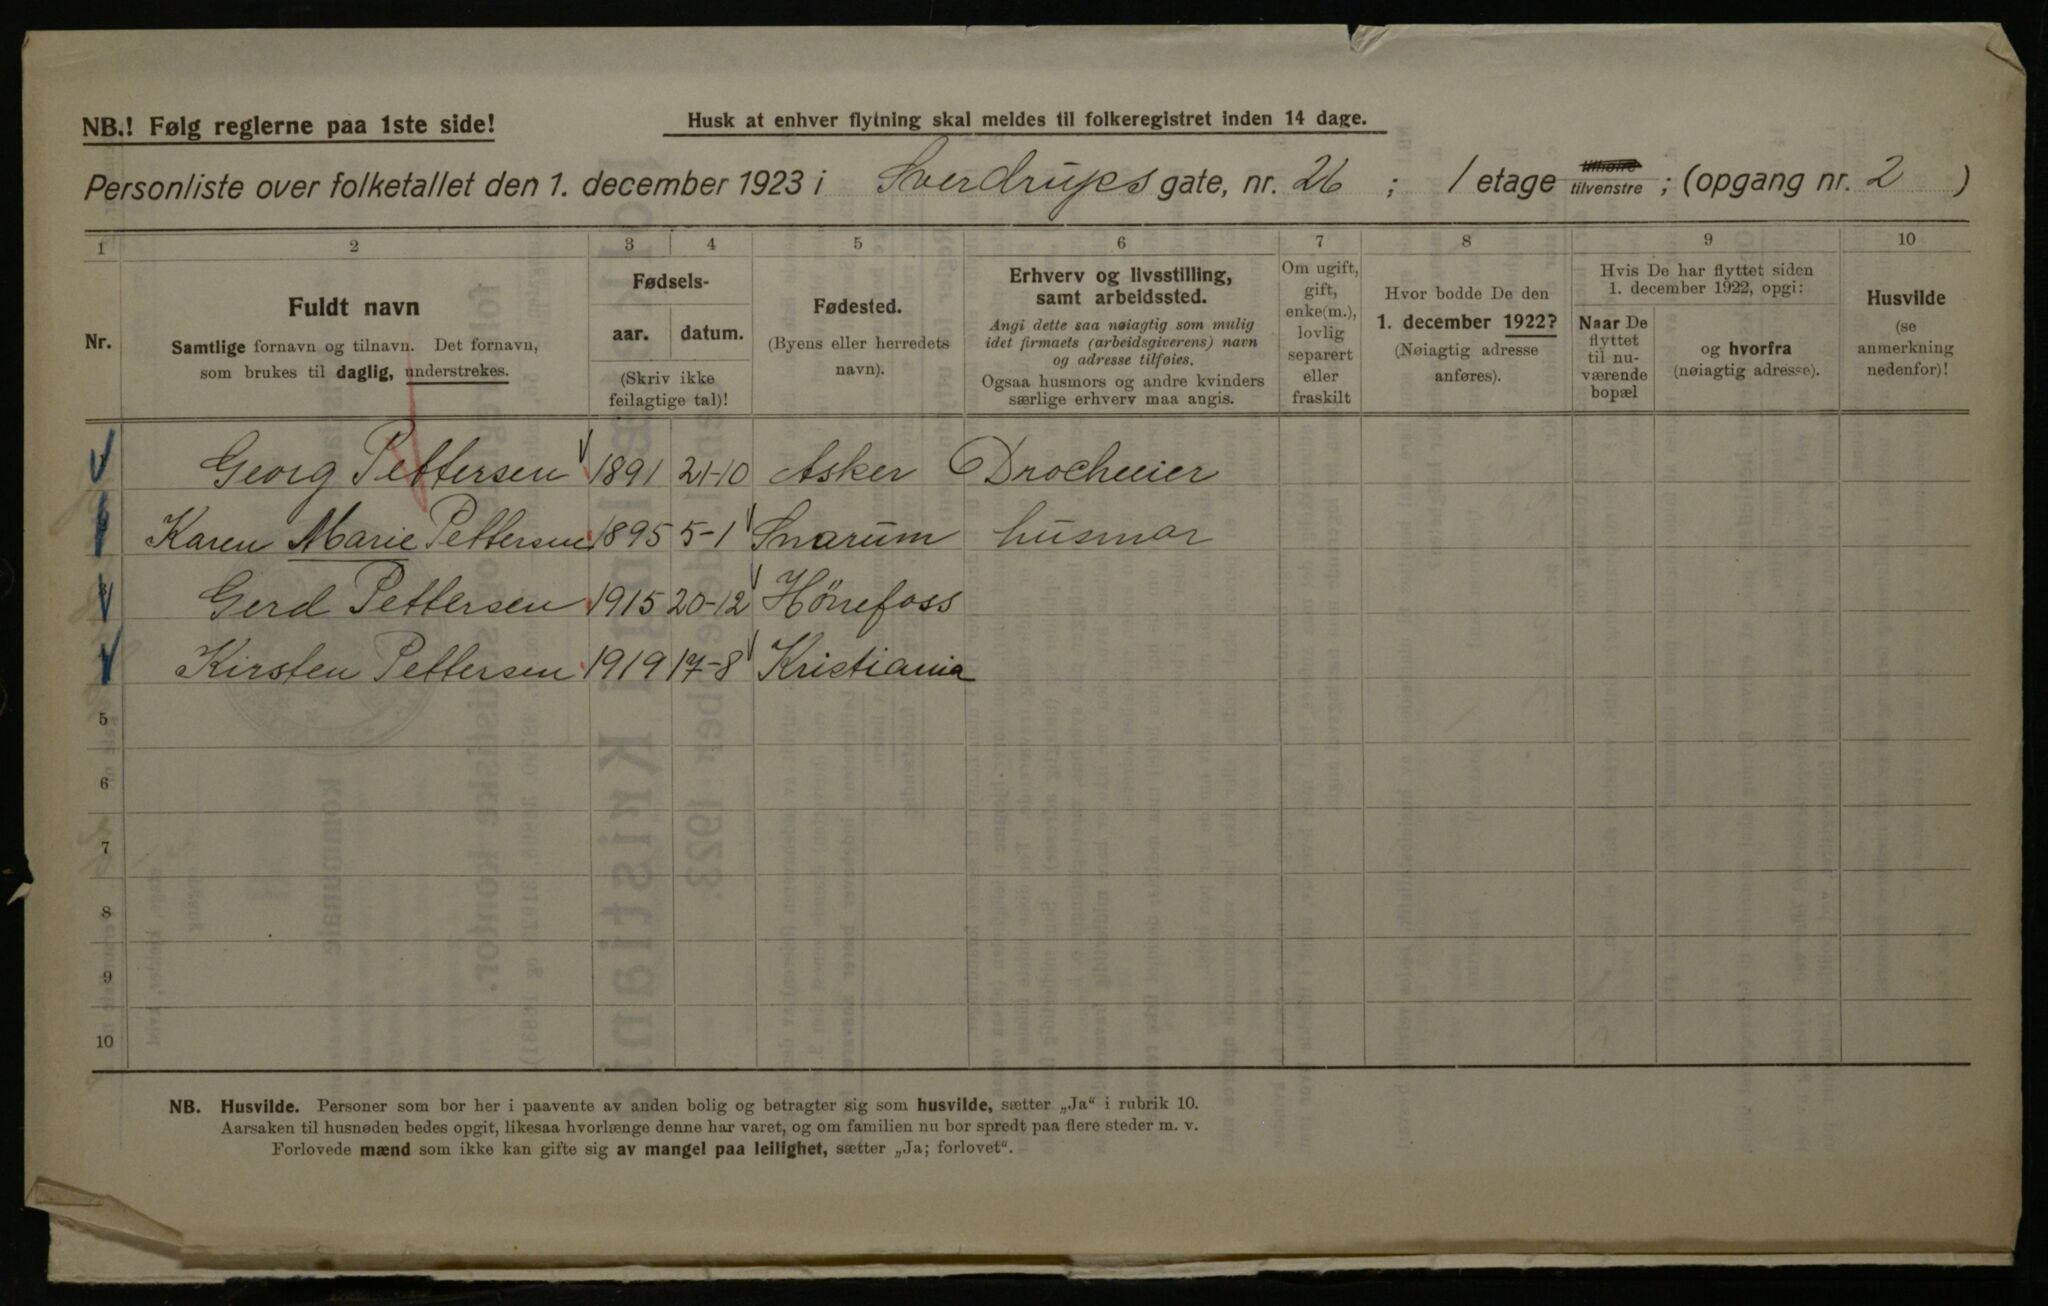 NB.! Følg reglerne paa 1ste side!
Husk at enhver flytning skal meldes til folkeregistret inden 14 dage.
Personliste over folketallet den 1. december 1923 i Sverdrups gate, nr. 26 ; 1 etage tilhøire tilvenstre ; (opgang nr. 2 )
1 2 3 4 5 6 7 8 9 10
Nr.
Fuldt navn
Samtlige fornavn og tilnavn. Det fornavn,
som brukes til daglig, understrekes.
Fødsels-
aar. datum.
(Skriv ikke
feilagtige tal)!
Fødested.
(Byens eller herredets
navn).
Erhverv og livsstilling,
samt arbeidssted.
Angi dette saa nøiagtig som mulig
idet firmaets (arbeidsgiverens) navn
og adresse tilføies.
Ogsaa husmors og andre kvinders
særlige erhverv maa angis.
Om ugift,
gift,
enke(m.),
lovlig
separert
eller
fraskilt
Hvor bodde De den
1. december 1922?
(Nøiagtig adresse
anføres).
Hvis De har flyttet siden
1. december 1922, opgi:
Naar De
flyttet
til nu-
værende
bopæl
og hvorfra
(nøiagtig adresse).
Husvilde
(se
anmerkning
nedenfor)!
Georg Pettersen 1891 21-10 Asker
Karen Marie Pettersen 1895 5-1 Snarum husmor
Gerd Pettersen 1915 20-12 Hönefoss
Kirsten Pettersen 1919 17-8 Kristiania
5
6
7
8
9
10
NB. Husvilde. Personer som bor her i paavente av anden bolig og betragter sig som husvilde, sætter „Ja“ i rubrik 10.
Aarsaken til husnøden bedes opgit, likesaa hvorlænge denne har varet, og om familien nu bor spredt paa flere steder m. v.
Forlovede mænd som ikke kan gifte sig av mangel paa leilighet, sætter „Ja; forlovet“.